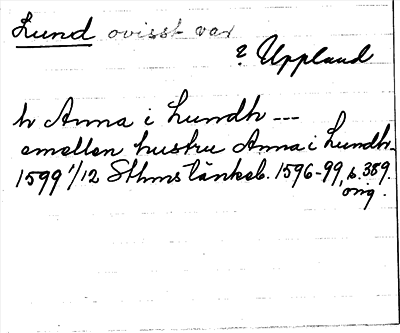 Lund ovisst var
? Uppland
h Anna i Lundh ---
emellen hustru Anna i Lundh -
1599 1/12 Sthms tänkeb. 1596-99, s. 389.
orig.